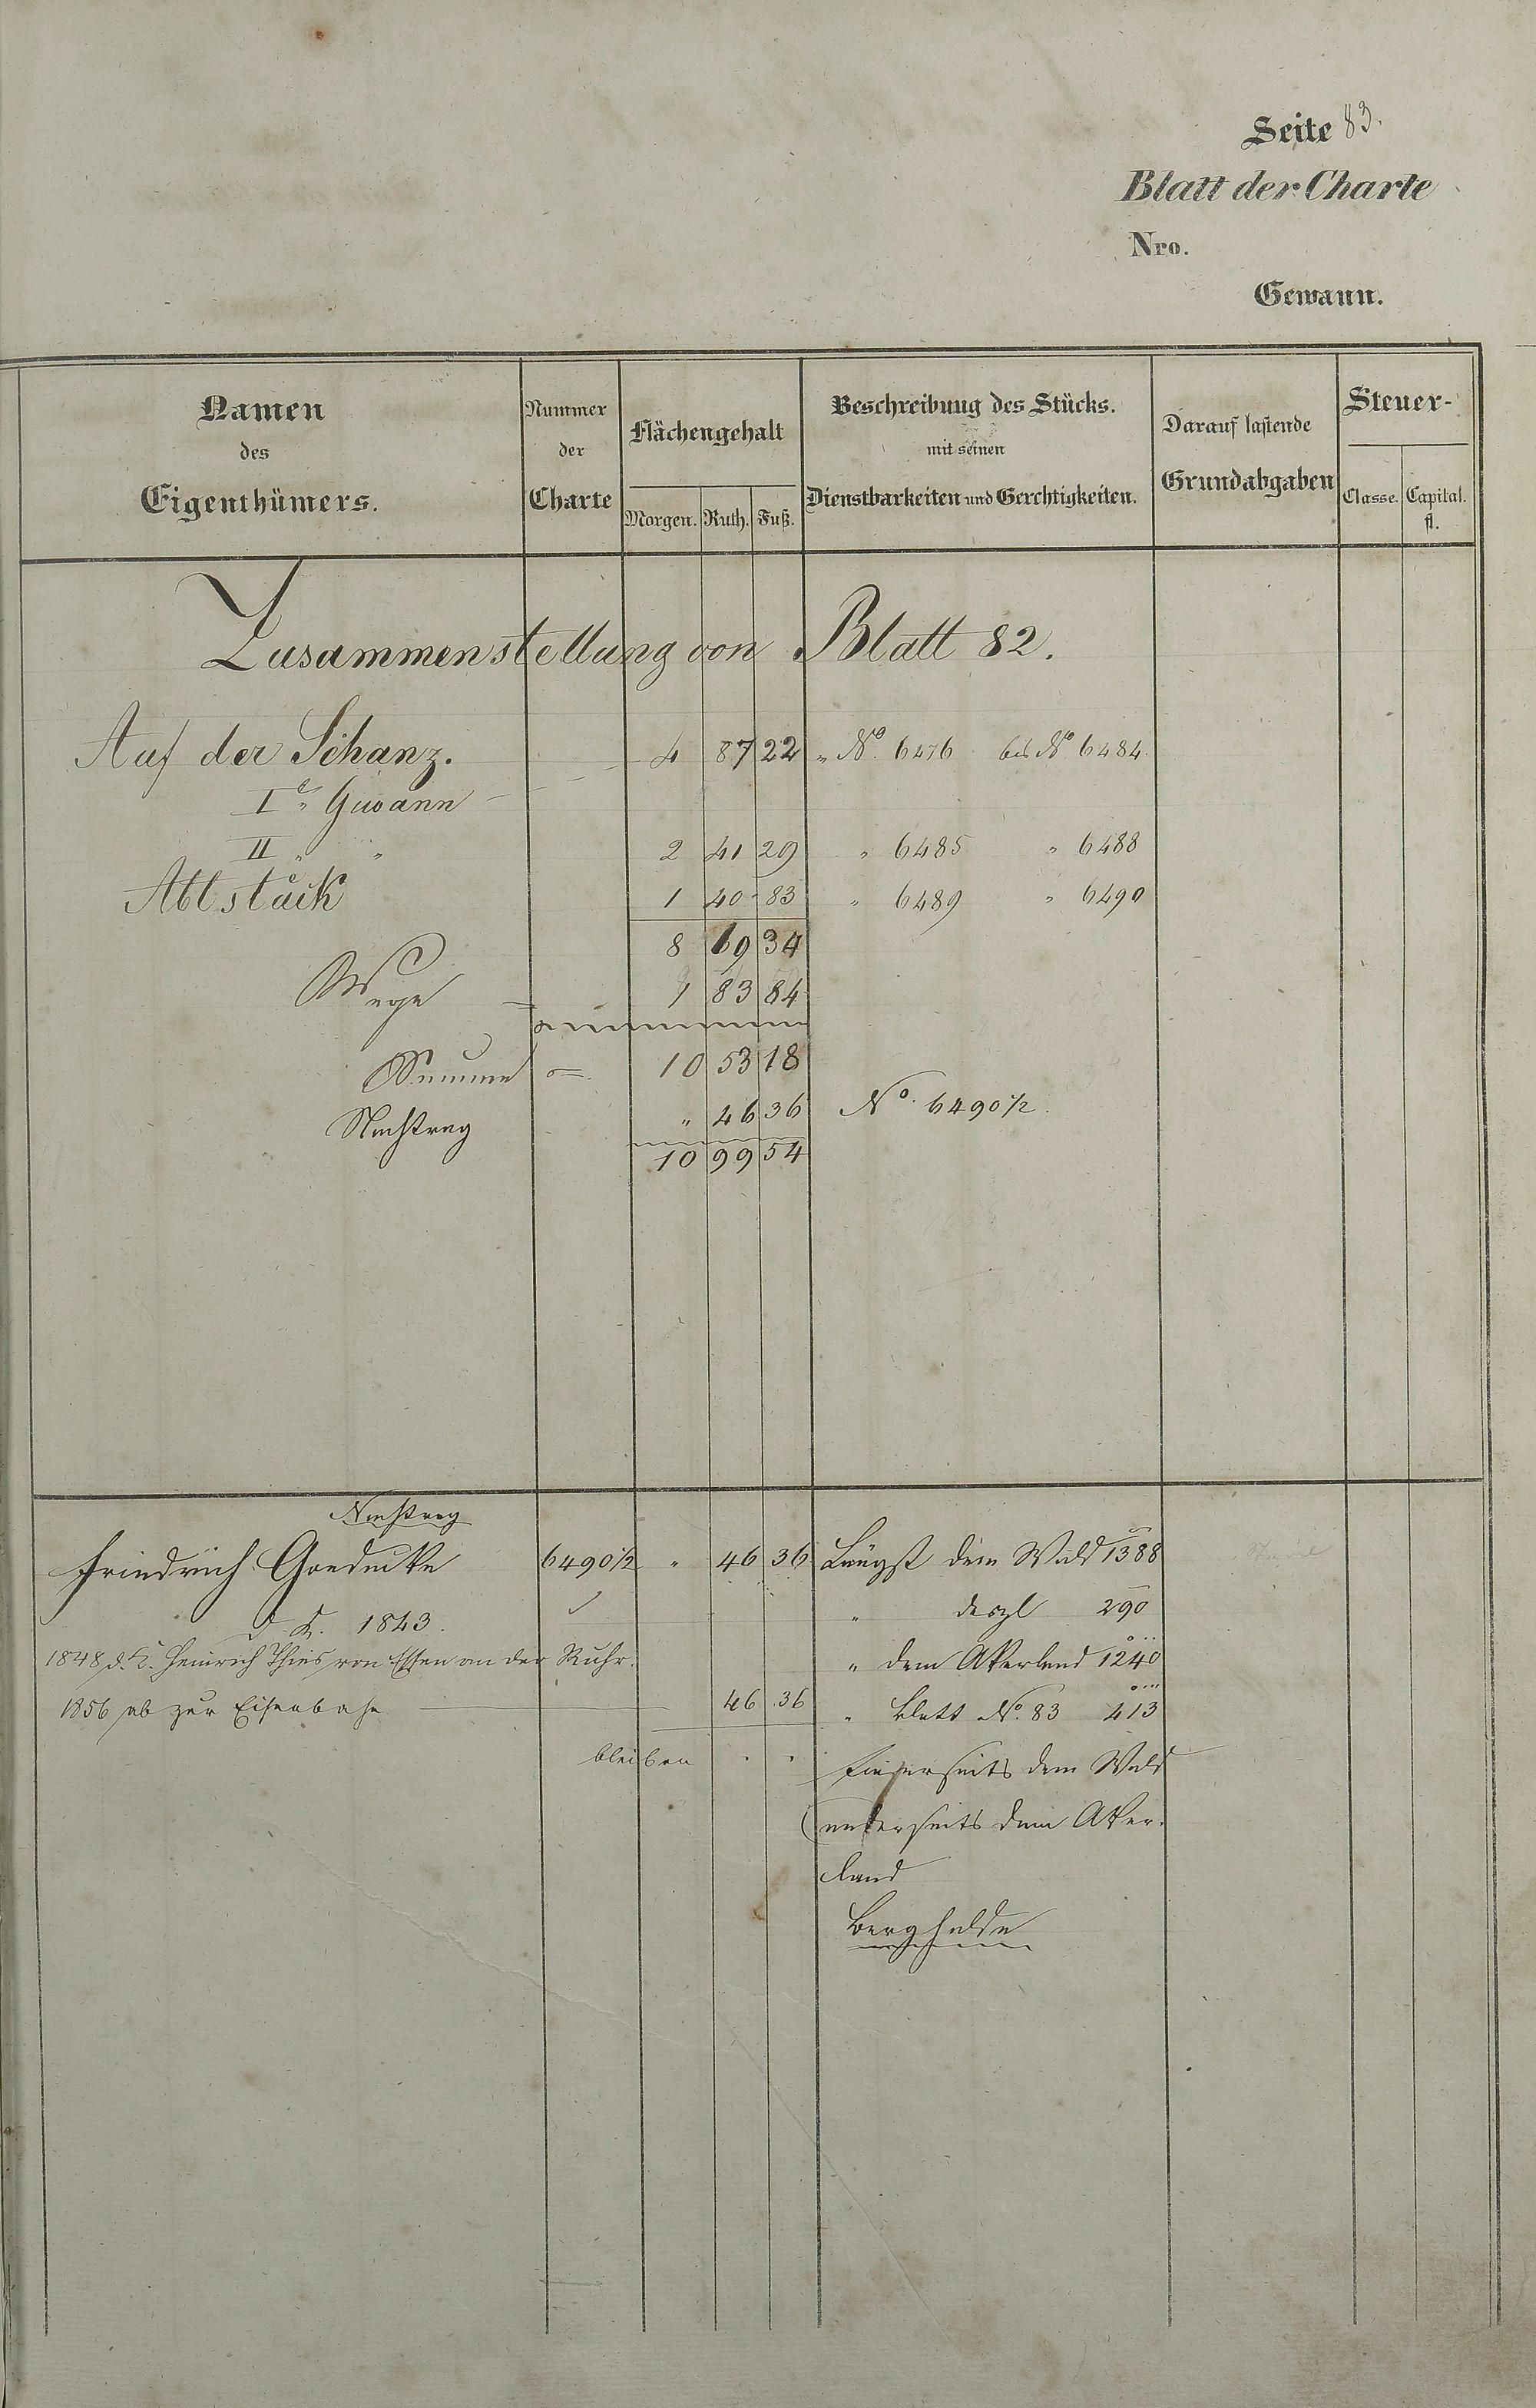 Seite 83.
Blatt der Charte
Nro.
Gewann.
Namen des Eigenthümers.
Nummer der Charte
Flächengehalt
Morgen. Ruth. Fuß.
Beschreibung des Stücks.
mit seinen
Dienstbarkeiten und Gerchtigkeiten.
Darauf lastende
Grundabgaben
Steuer-
Classe. Capital.
fl.
Zusammenstellung von Blatt 82.
Auf der Schanz. 4 87 22 " No. 6476 bis No 6484.
Ie. Gewann
II " " 2 41 29 " 6485 " 6488
Abtstück 1 40 83 " 6489 " 6490
8 69 34
Wege 1 83 84
Summe = 10 53 18
Nachtrag " 46 36 No. 6490 1/2.
10 99 54
Nachtrag
Friedrich Goedecke 6490 1/2 " 46 36 Längst dem Wald 1388
d. K. 1843. " desgl 290
1848 d. K. Heinrich Thies von Essen an der Ruhr. " dem Akerland 1240
1856 ab zur Eisenbahn 46 36 " Blatt No. 83 413
bleiben . . Einerseits dem Wald
anderseits dem Aker-
land
Berghalde